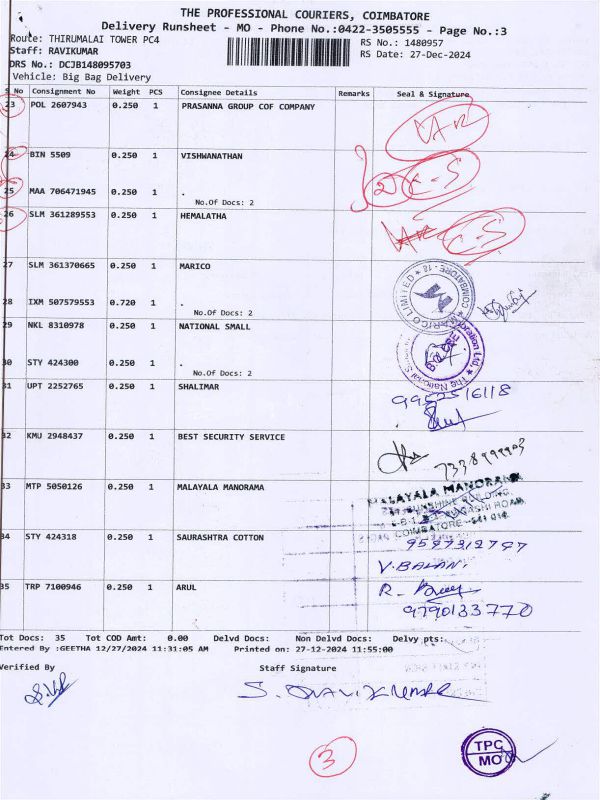 THE PROFESSIONAL COURIERS, COIMBATORE
Delivery Runsheet - MO - Phone No.:0422-3505555 - Page No.:3
Route: THIRUMALAI TOWER PC4
RS No.: 1480957
Staff: RAVIKUMAR
RS Date: 27-Dec-2024
DRS No.: DCJB148095703
Vehicle: Big Bag Delivery
S No Consignment No Weight PCS Consignee Details Remarks Seal & Signature
23 POL 2607943 0.250 1 PRASANNA GROUP COF COMPANY
24 BIN 5509 0.250 1 VISHWANATHAN
25 MAA 706471945 0.250 1 .
No.Of Docs: 2
26 SLM 361289553 0.250 1 HEMALATHA
27 SLM 361370665 0.250 1 MARICO
MARICO LIMITED * COIMBATORE - 18 *
28 IXM 507579553 0.720 1 .
No.Of Docs: 2
29 NKL 8310978 0.250 1 NATIONAL SMALL
30 STY 424300 0.250 1 .
No.Of Docs: 2
31 UPT 2252765 0.250 1 SHALIMAR
9952516118
32 KMU 2948437 0.250 1 BEST SECURITY SERVICE
33 MTP 5050126 0.250 1 MALAYALA MANORAMA
MALAYALA MANORAMA
34 STY 424318 0.250 1 SAURASHTRA COTTON
V. BALAN.
35 TRP 7100946 0.250 1 ARUL
9790133770
Tot Docs: 35 Tot COD Amt: 0.00 Delvd Docs: Non Delvd Docs: Delvy pts:
Entered By :GEETHA 12/27/2024 11:31:05 AM Printed on: 27-12-2024 11:55:00
Verified By Staff Signature
3
TPC
MO